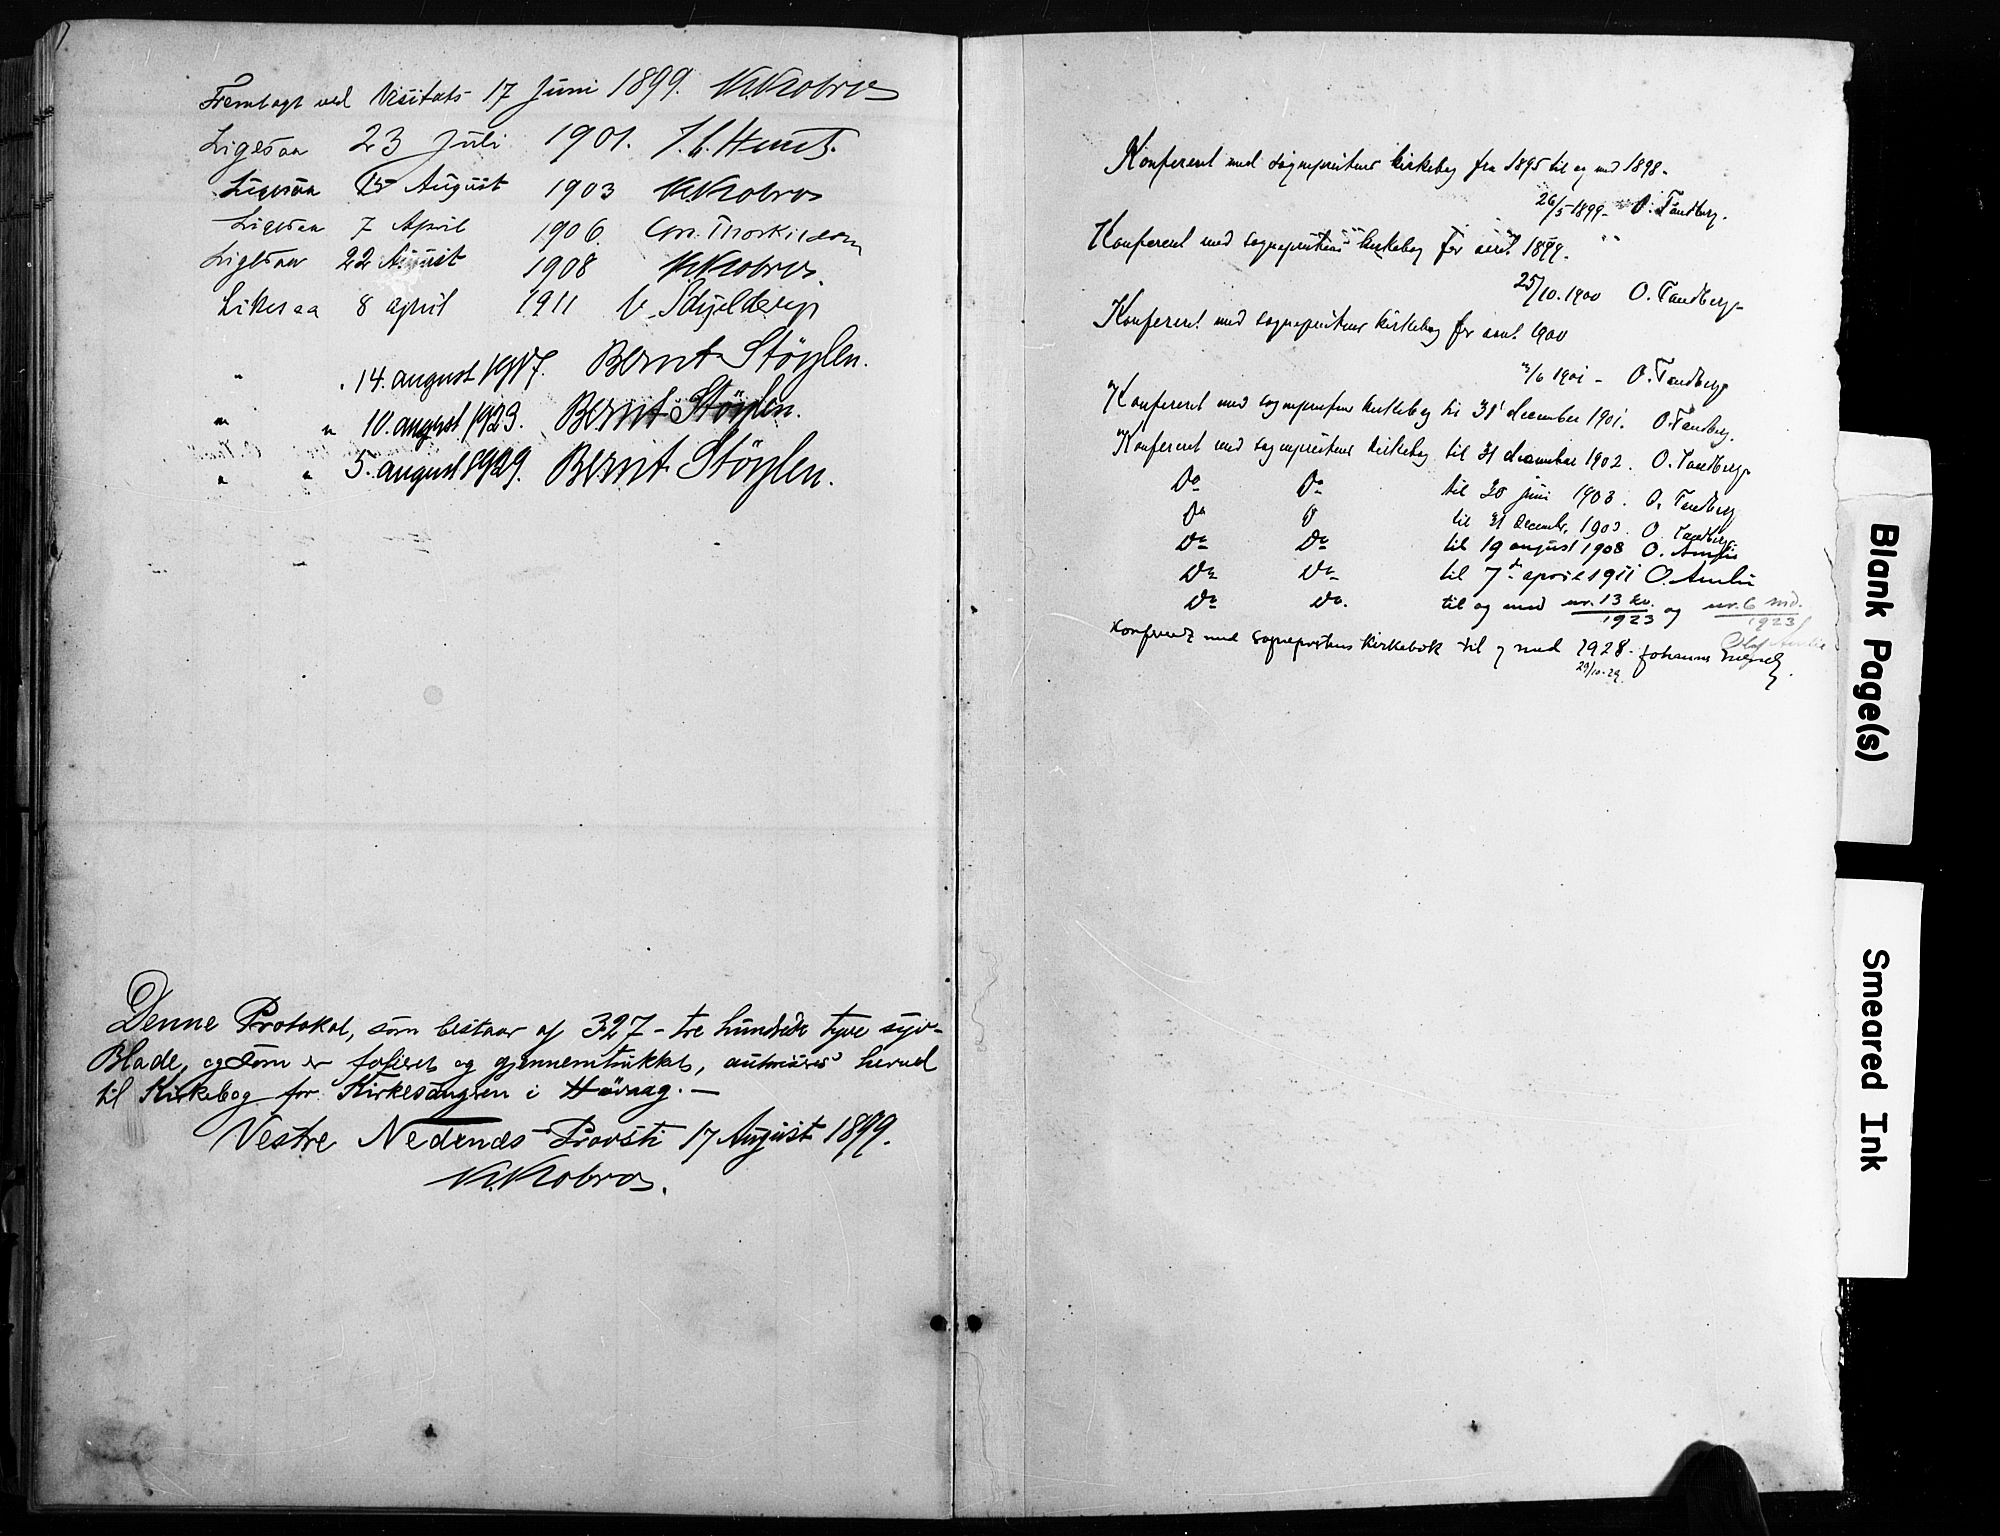 Fremlagt ved Visitats 17 Juni 1899.
Ligesaa 23 Juli 1901.
Ligesaa 15 August 1903
Ligesaa 7 April 1906.
Ligesaa 22 August 1908
Likesaa 8 april 1911 V. Schjelderup
" " 14. august 1917. Bernt Støylen.
" " 10. august 1923. Bernt Støylen.
" " 5. august 1929. Bernt Støylen.
Denne Protokol, som bestaar af 327 - tre hundrede tyve syv -
Blade, og som er folieret og gjennemtrukket, autoriseres herved
til Kirkebog for Kirkesangeren i Høvaag. —
Vestre Nedenes Provsti 17 August 1899.
Konfereret med sogneprestens kirkebog fra 1895 til og med 1898.
26/5 1899 - O. Tandberg.
Konfereret med sogneprestens kirkebog for aaret 1899.
25/10. 1900 O. Tandberg.
Konfereret med sogneprestens kirkebog for aaret 1900
/6 1901 - O. Tandberg
Konfereret med sogneprestens kirkebog til 31 december 1901. O. Tandberg.
Konfereret med sogneprestens kirkebog til 31 december 1902. O. Tandberg.
Do Do til 30 juni 1903. O. Tandberg
Do D til 31 december 1903. O. Tandberg.
Do Do til 19 august 1908 O. Amlie
Do Do til 7de april 1911 O. Amlie
Do Do. til og med nr. 13 kv. 1923 og nr. 6 md. 1923
Olaf Amlie
Konferert med sogneprestens kirkebok til og med 1928. Johannes
29/10-29.
Blank Page(s)
Smeared Ink